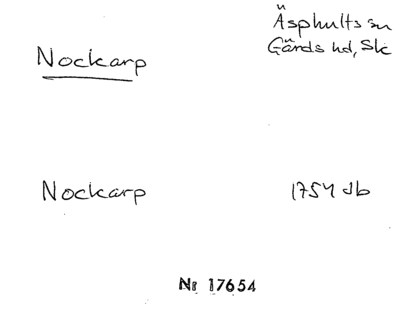 Nockarp
Äsphults sn
Gärds hd, Sk
Nockarp
1754 Jb
Nr 17654